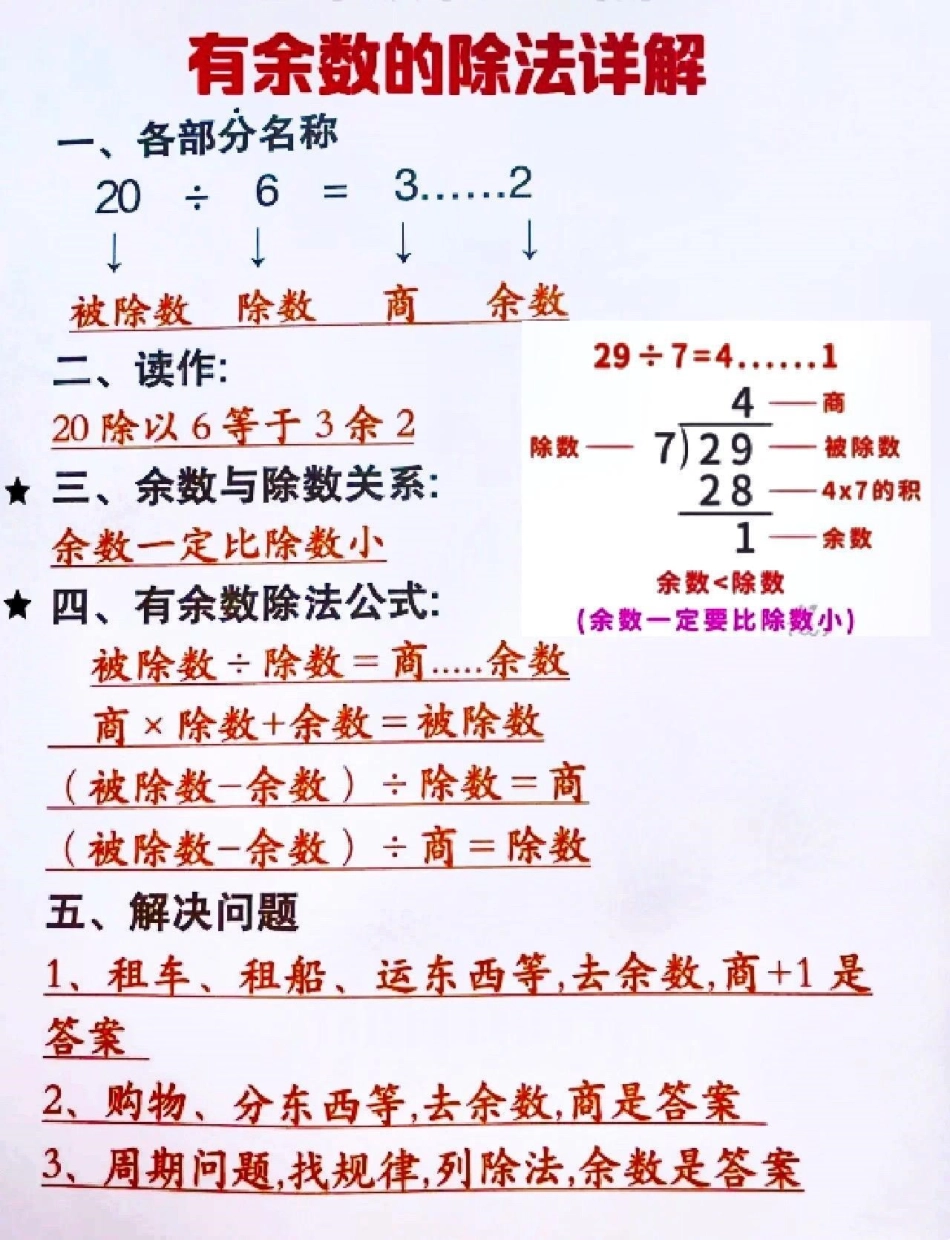 有余数的除法详解
一、各部分名称
20 ÷ 6 = 3……2
↓ ↓ ↓ ↓
被除数 除数 商 余数
二、读作:
20除以6等于3余2
★ 三、余数与除数关系:
余数一定比除数小
★ 四、有余数除法公式:
被除数÷除数=商.....余数
商×除数+余数=被除数
（被除数-余数）÷除数=商
（被除数-余数）÷商=除数
29÷7=4……1
4 —— 商
除数 —— 7)29 —— 被除数
28 —— 4x7的积
1 —— 余数
余数<除数
(余数一定要比除数小)
五、解决问题
1、租车、租船、运东西等,去余数,商+1是
答案
2、购物、分东西等,去余数,商是答案
3、周期问题,找规律,列除法,余数是答案